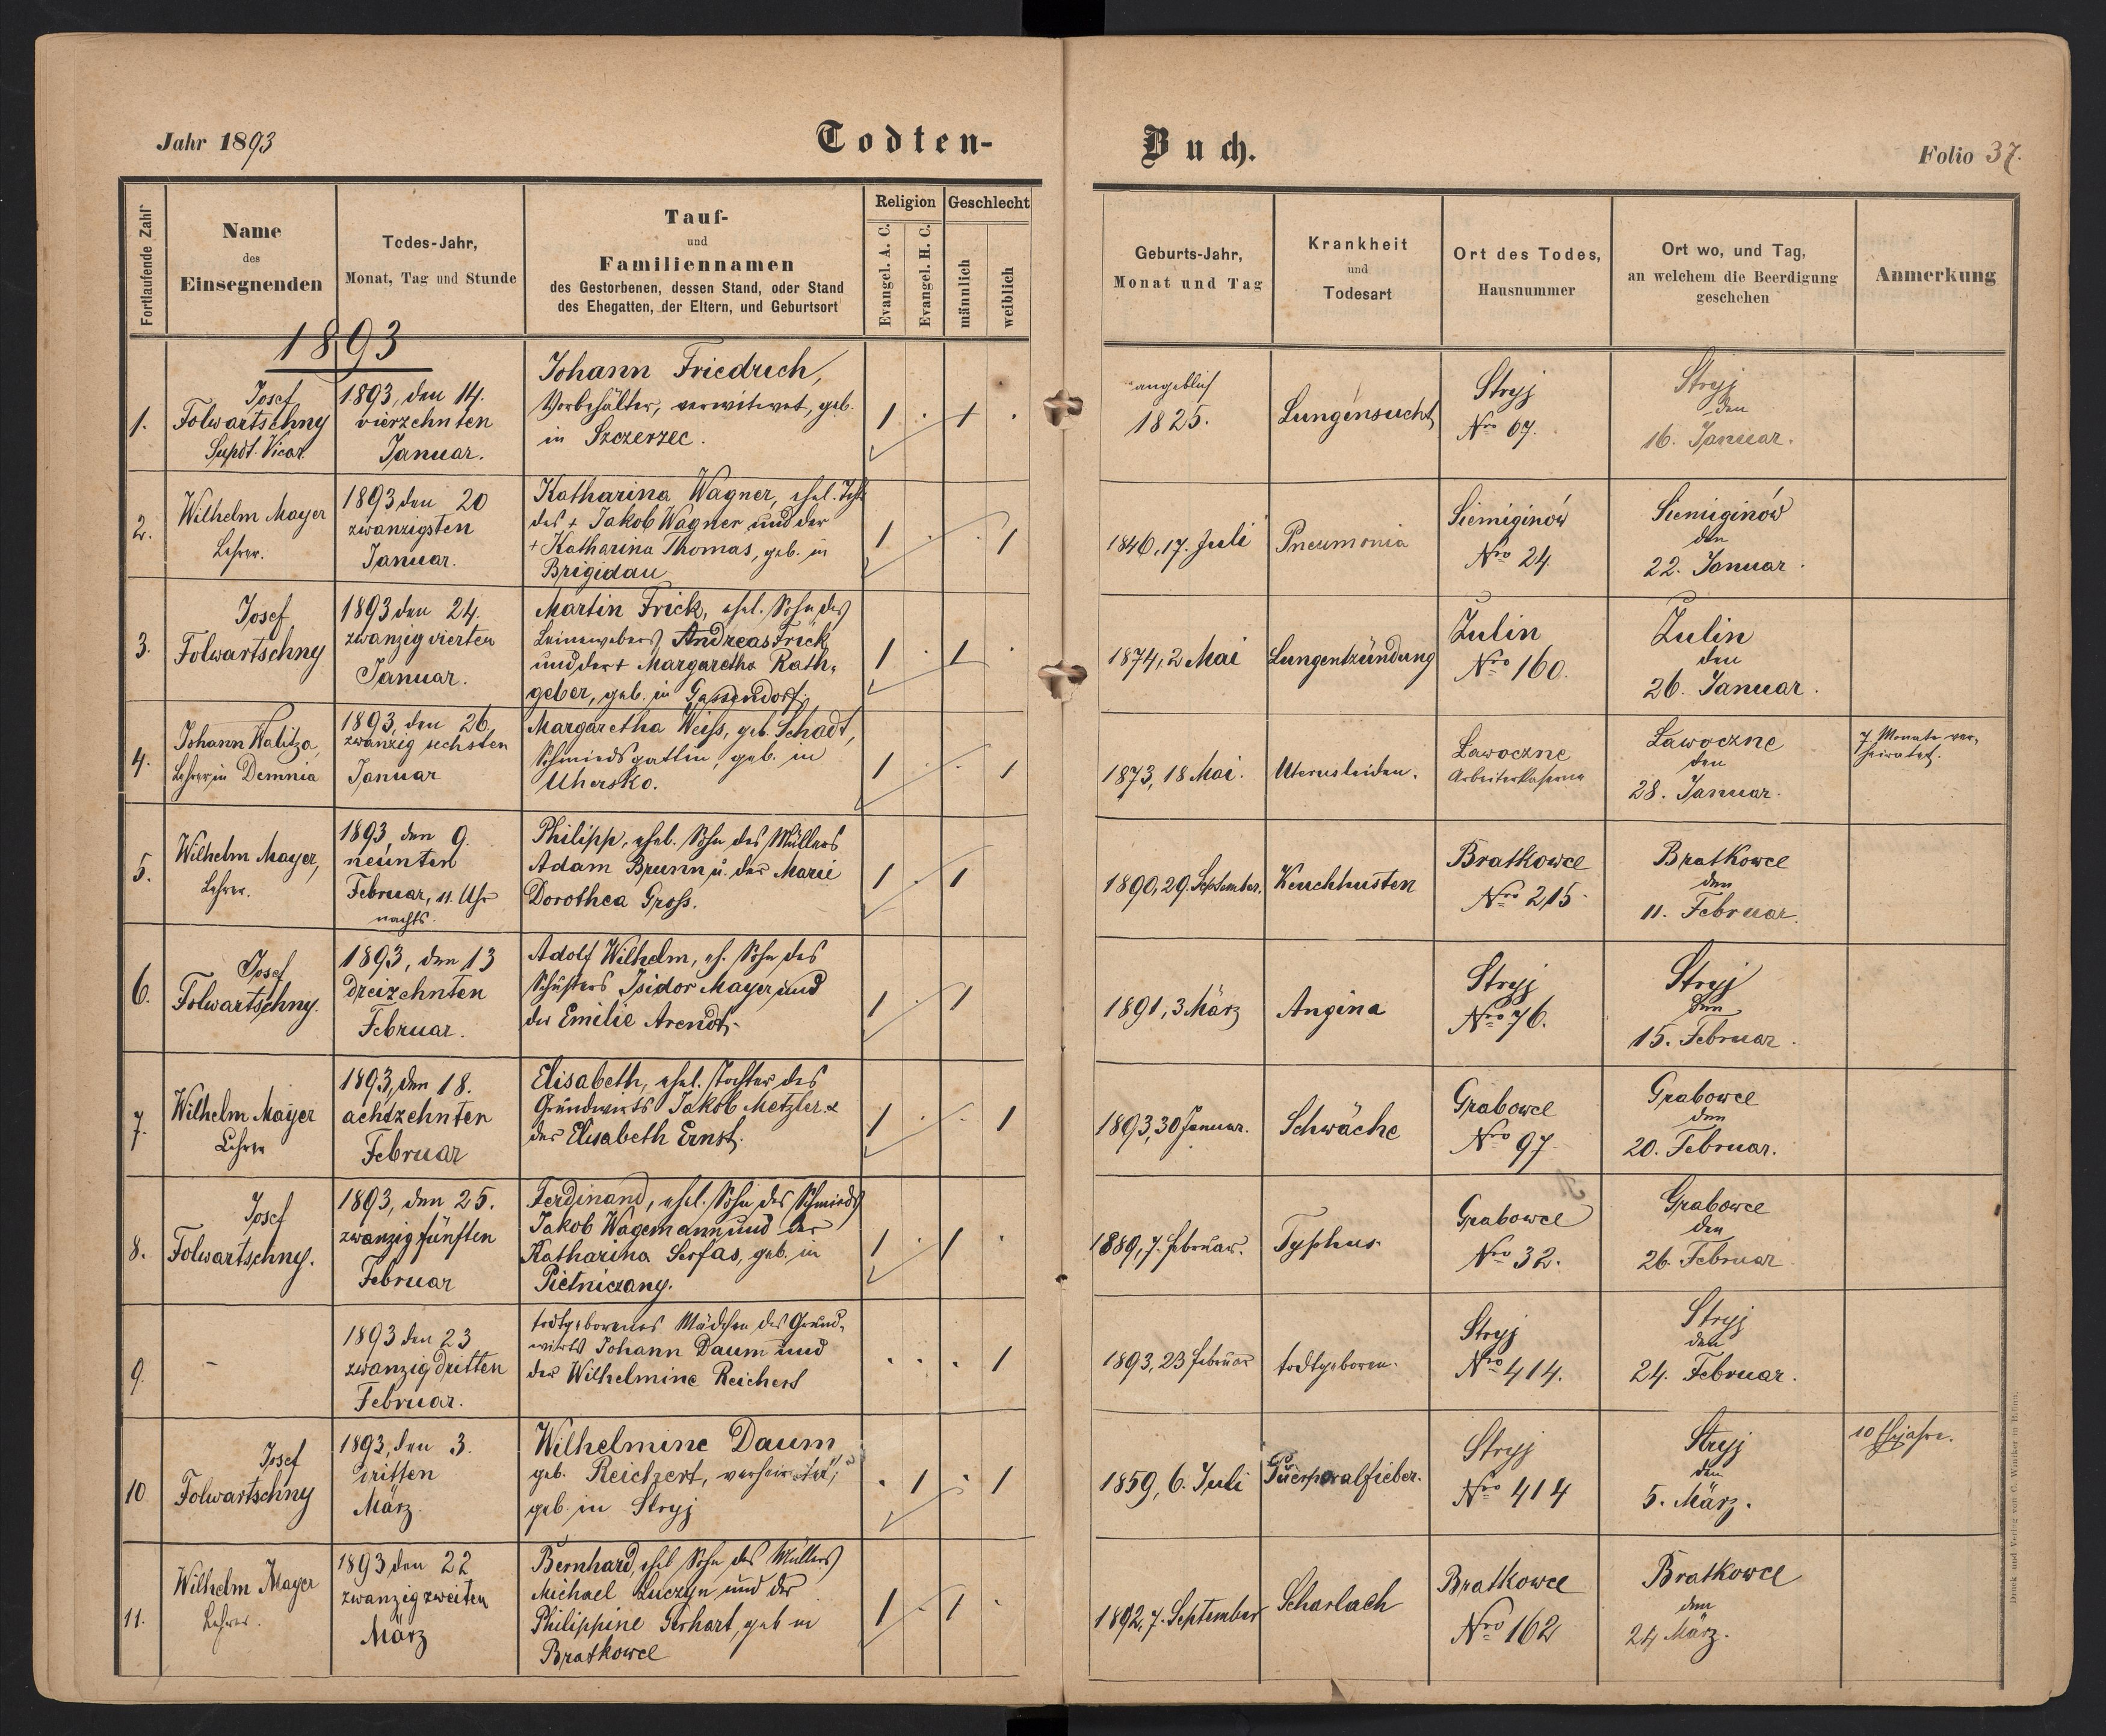 Jahr 1893
Todten-
Buch.
Folio 37.
Fortlaufende Zahl
Name
des
Einsegnenden
Todes-Jahr,
Monat, Tag und Stunde
Tauf-
und
Familiennamen
des Gestorbenen, dessen Stand, oder Stand
des Ehegatten, der Eltern, und Geburtsort
Religion
Evangel. A. C.
Evangel. H. C.
Geschlecht
männlich
weiblich
Geburts-Jahr,
Monat und Tag
Krankheit
und
Todesart
Ort des Todes,
Hausnummer
Ort wo, und Tag,
an welchem die Beerdigung
geschehen
Anmerkung
1893
1.
Josef
Folwartschny
Supdt. Vicar.
1893, den 14.
vierzehnten
Januar.
Johann Friedrich,
verwitwet, geb.
in Szczerzec.
1 . 1 .
angeblich
1825.
Lungensucht
Stryj
Nro 67.
Stryj
den
16. Januar.
2.
Wilhelm Mayer
Lehrer.
1893 den 20
zwanzigsten
Januar.
Katharina Wagner, ehel. Tocht
des + Jakob Wagner und der
+ Katharina Thomas, geb. in
Brigidau
1 . . 1
1846, 17. Juli
Pneumonia
Siemiginów
Nro 24.
Siemiginów
den
22. Januar.
3.
Josef
Folwartschny
1893 den 24.
zwanzig vierten
Januar.
Martin Frick, ehel. Sohn des
Leinewebers Andreas Frick
und der + Margaretha Rath-
geber, geb. in Gassendorf.
1 . 1 .
1874, 2 Mai
Lungentzündung
Zulin
Nro 160.
Zulin
den
26. Januar.
4.
Johann Walitza,
Lehrer in Demnia
1893, den 26.
zwanzig sechsten
Januar
Margaretha Weiss, geb. Schadt,
Schmiedsgattin, geb. in
Uhersko.
1 . . 1
1873, 18 Mai.
Uterusleiden.
Lawoczne
Arbeiterkaserne
Lawoczne
den
28. Januar.
7 Monate ver-
heiratet.
5.
Wilhelm Mayer,
Lehrer.
1893, den 9.
neunten
Februar, 11. Uhr
nachts.
Philipp, ehel. Sohn des Müllers
Adam Brunn u. der Marie
Dorothea Gross.
1 . 1
1890, 29. September.
Keuchhusten
Bratkowce
Nro 215
Bratkowce
den
11. Februar.
6.
Josef
Folwartschny.
1893, den 13
dreizehnten
Februar.
Adolf Wilhelm, eh. Sohn des
Schusters Isidor Mayer und
der Emilie Arendt.
1 . 1
1891, 3 März
Angina
Stryj
Nro 76.
Stryj
den
15. Februar.
7.
Wilhelm Mayer
Lehrer
1893, den 18.
achtzehnten
Februar
Elisabeth, ehel. Tochter des
Grundwirts Jakob Metzler &
der Elisabeth Ernst.
1 . . 1
1893, 30 Januar.
Schwäche
Grabowce
Nro 97.
Grabowce
den
20. Februar.
8.
Josef
Folwartschny.
1893, den 25.
zwanzig fünften
Februar
Ferdinand, ehel. Sohn des Schmieds
Jakob Wagemann und der
Katharina Serfas, geb. in
Pietniczany.
1 . 1 .
1889, 7. Februar.
Typhus
Grabowce
Nro 32.
Grabowce
den
26. Februar
9.
-
1893 den 23
zwanzig dritten
Februar.
todtgeborenes Mädchen des Grund-
wirts Johann Daum und
der Wilhelmine Reichert
. . . 1
1893, 23 Februar
todtgeboren.
Stryj
Nro 414.
Stryj
den
24. Februar.
10
Josef
Folwartschny
1893, den 3.
dritten
März.
Wilhelmine Daum
geb. Reichert, verheiratet,
geb. in Stryj
. 1 . 1
1859, 6. Juli
Puerperalfieber.
Stryj
Nro 414
Stryj
den
5. März.
10 Ehejahre.
11.
Wilhelm Mayer
Lehrer.
1893 den 22
zwanzig zweiten
März
Bernhard, ehel Sohn des Müllers
Michael Luczyn und der
Philippine Gerhart, geb in
Bratkowce
1 . 1 .
1892, 7. September
Scharlach
Bratkowce
Nro 162
Bratkowce
den
24 März.
Druck und Verlag von C. Winiker in Brünn.